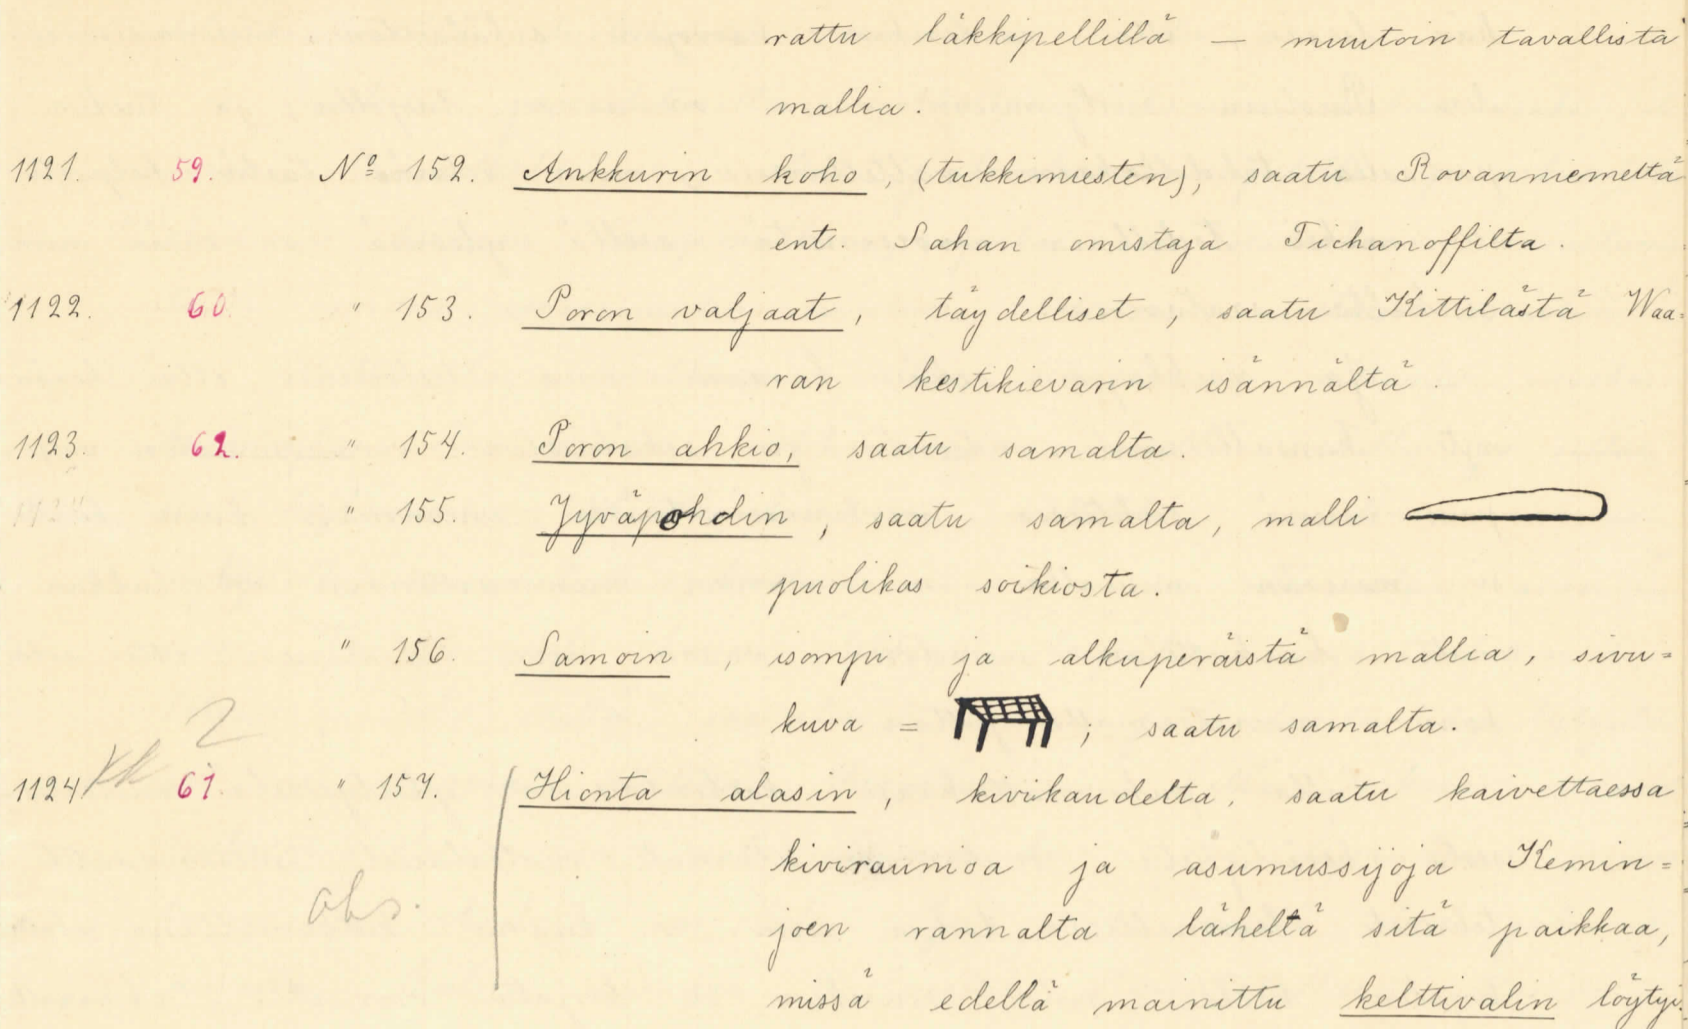 rattu läkkipellillä — muutoin tavallista
mallia.
1121. 59. Nº 152. Ankkurin koho, (tukkimiesten), saatu Rovanniemeltä
ent. Sahan omistaja Tichanoffilta.
1122. 60. " 153. Poron valjaat, täydelliset, saatu Kittilästä Waa=
ran kestikievarin isännältä.
1123. 62. " 154. Poron ahkio, saatu samalta.
" 155. Jyväpohdin, saatu samalta, malli
puolikas soikiosta.
" 156. Samoin, isompi ja alkuperäistä mallia, sivu=
kuva = ; saatu samalta.
2
1124 KK 61. " 157. Hionta alasin, kivikaudelta, saatu kaivettaessa
kiviraunioa ja asumussijoja Kemin=
obs. joen rannalta läheltä sitä paikkaa,
missä edellä mainittu kelttivalin löytyi.